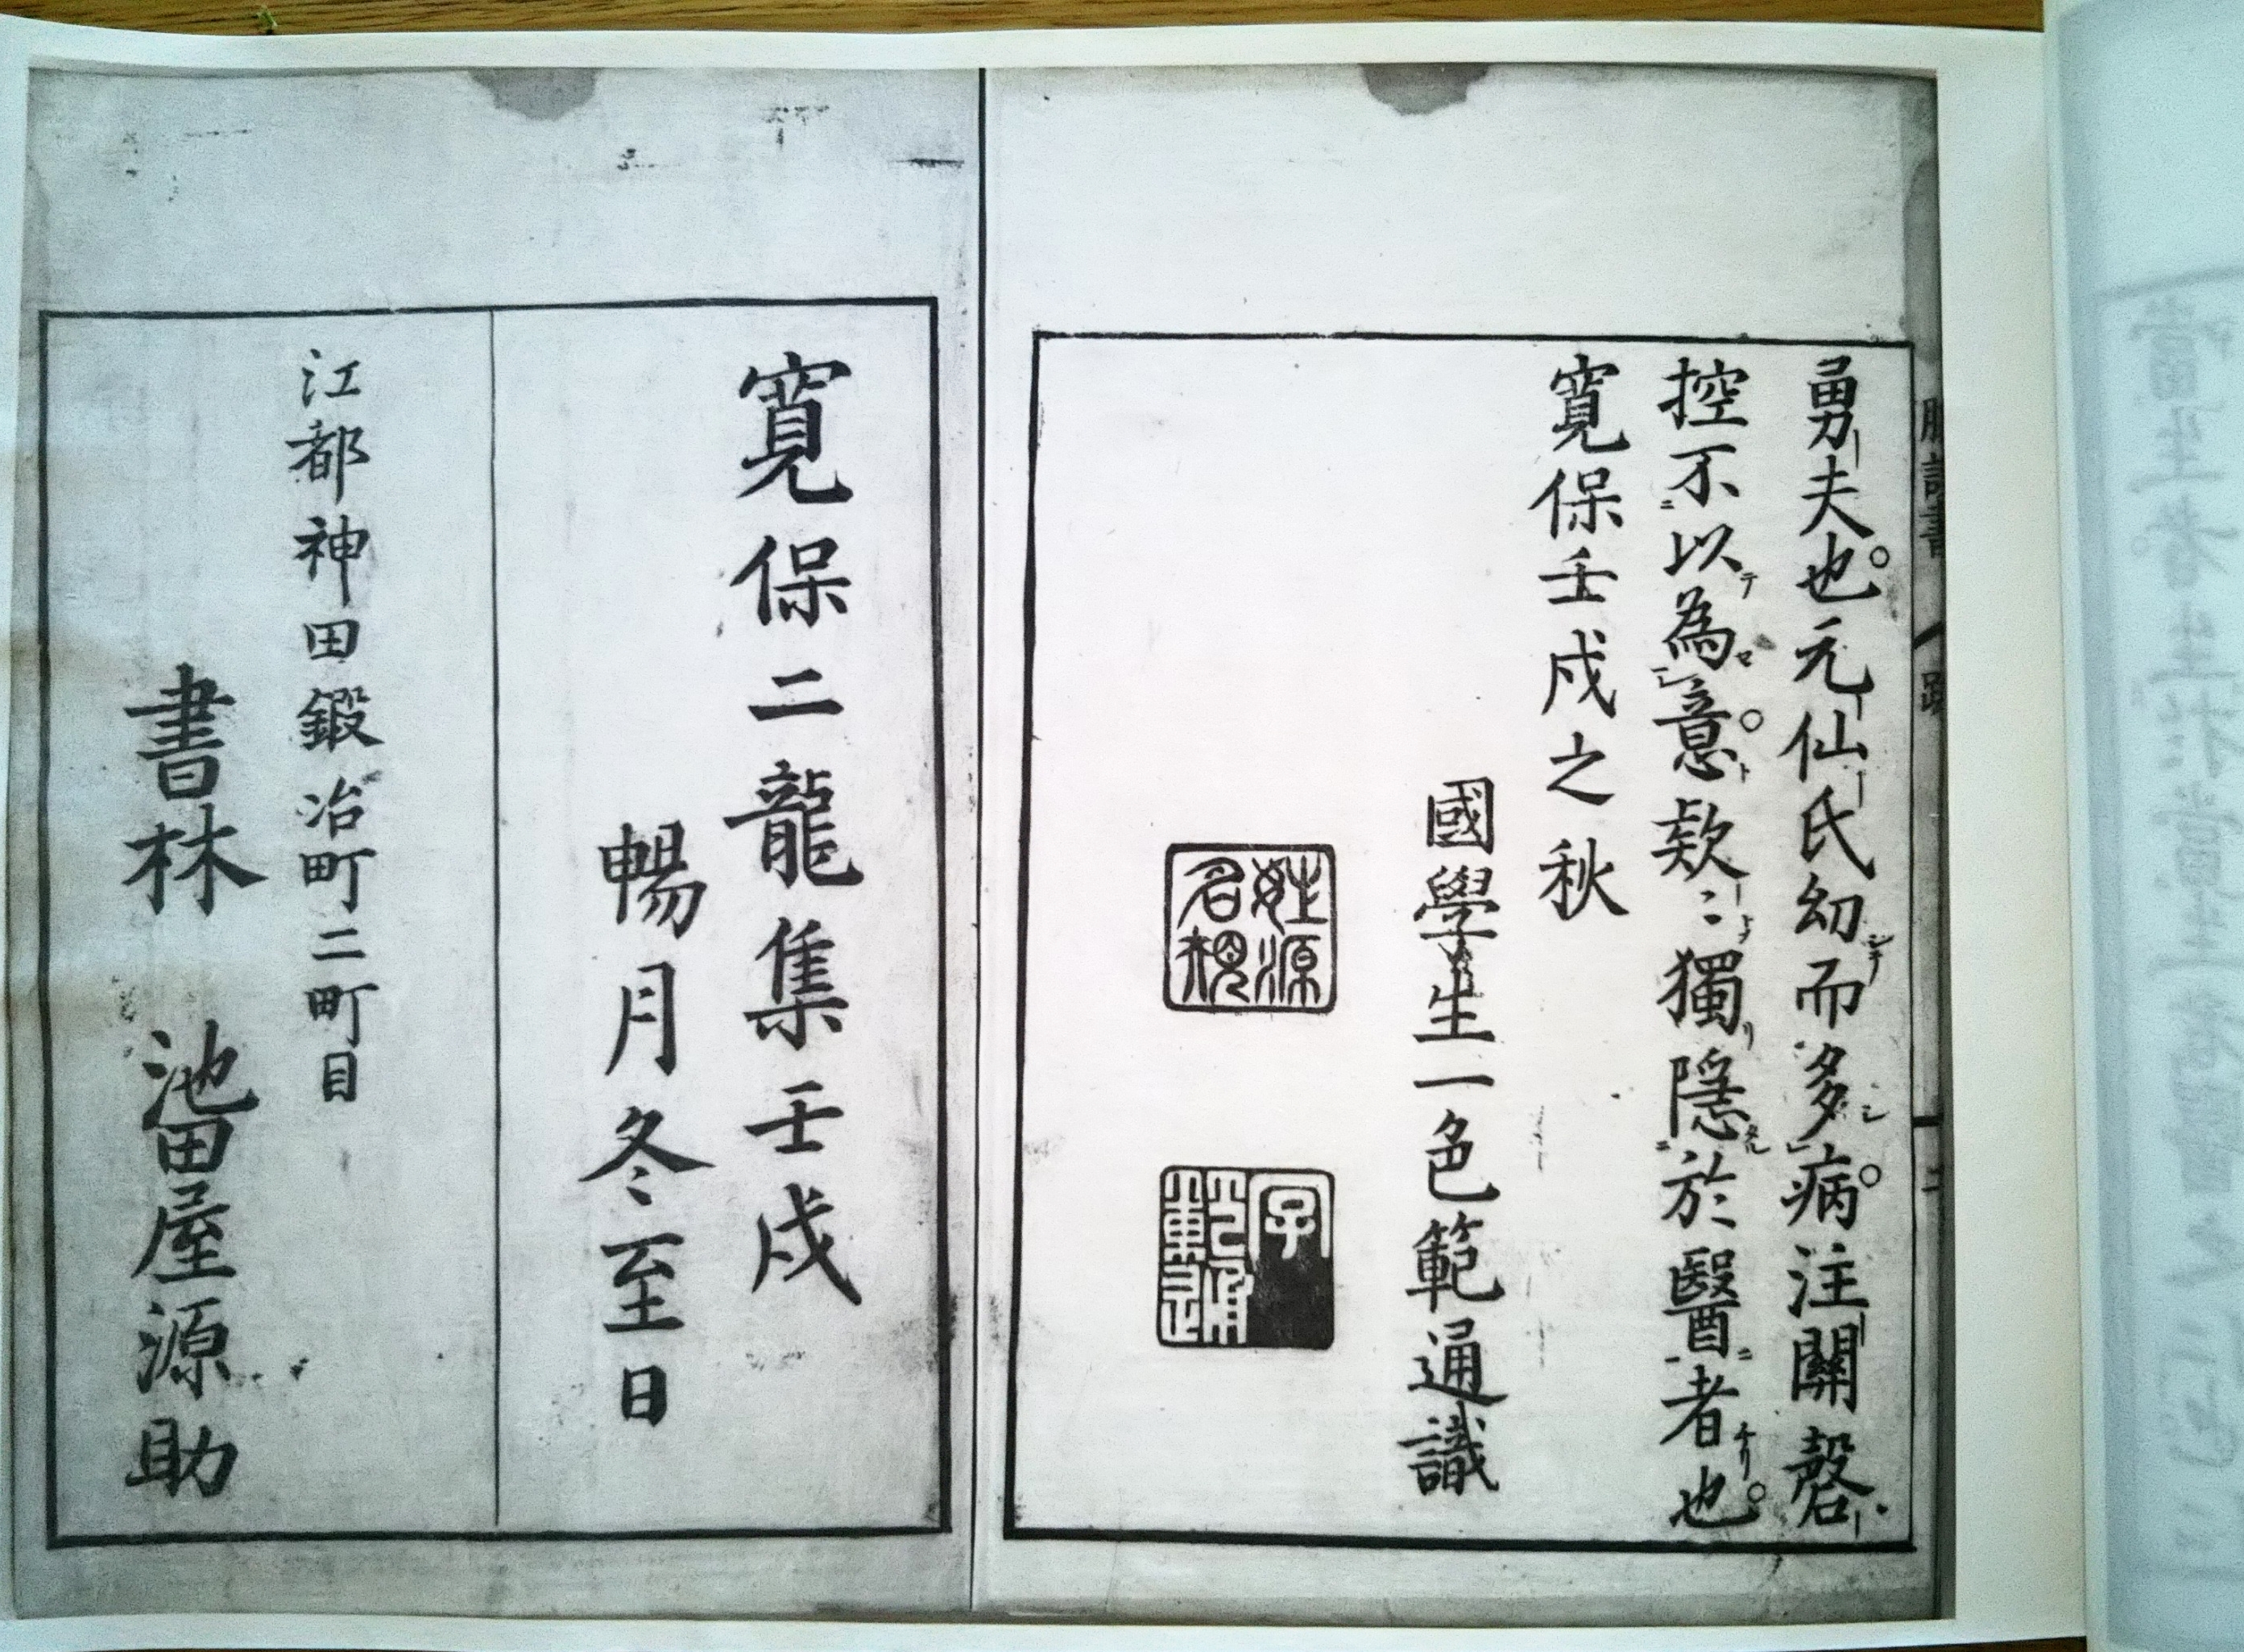 勇夫也。元仙氏幼而多病。注關磬
控不以為意。欵〻獨隱於醫者也。
寛保壬戌之秋
國學生一色範通識
姓源名親
寛保二龍集壬戌
暢月冬至日
江都神田鍛冶町二町目
書林 池田屋源助